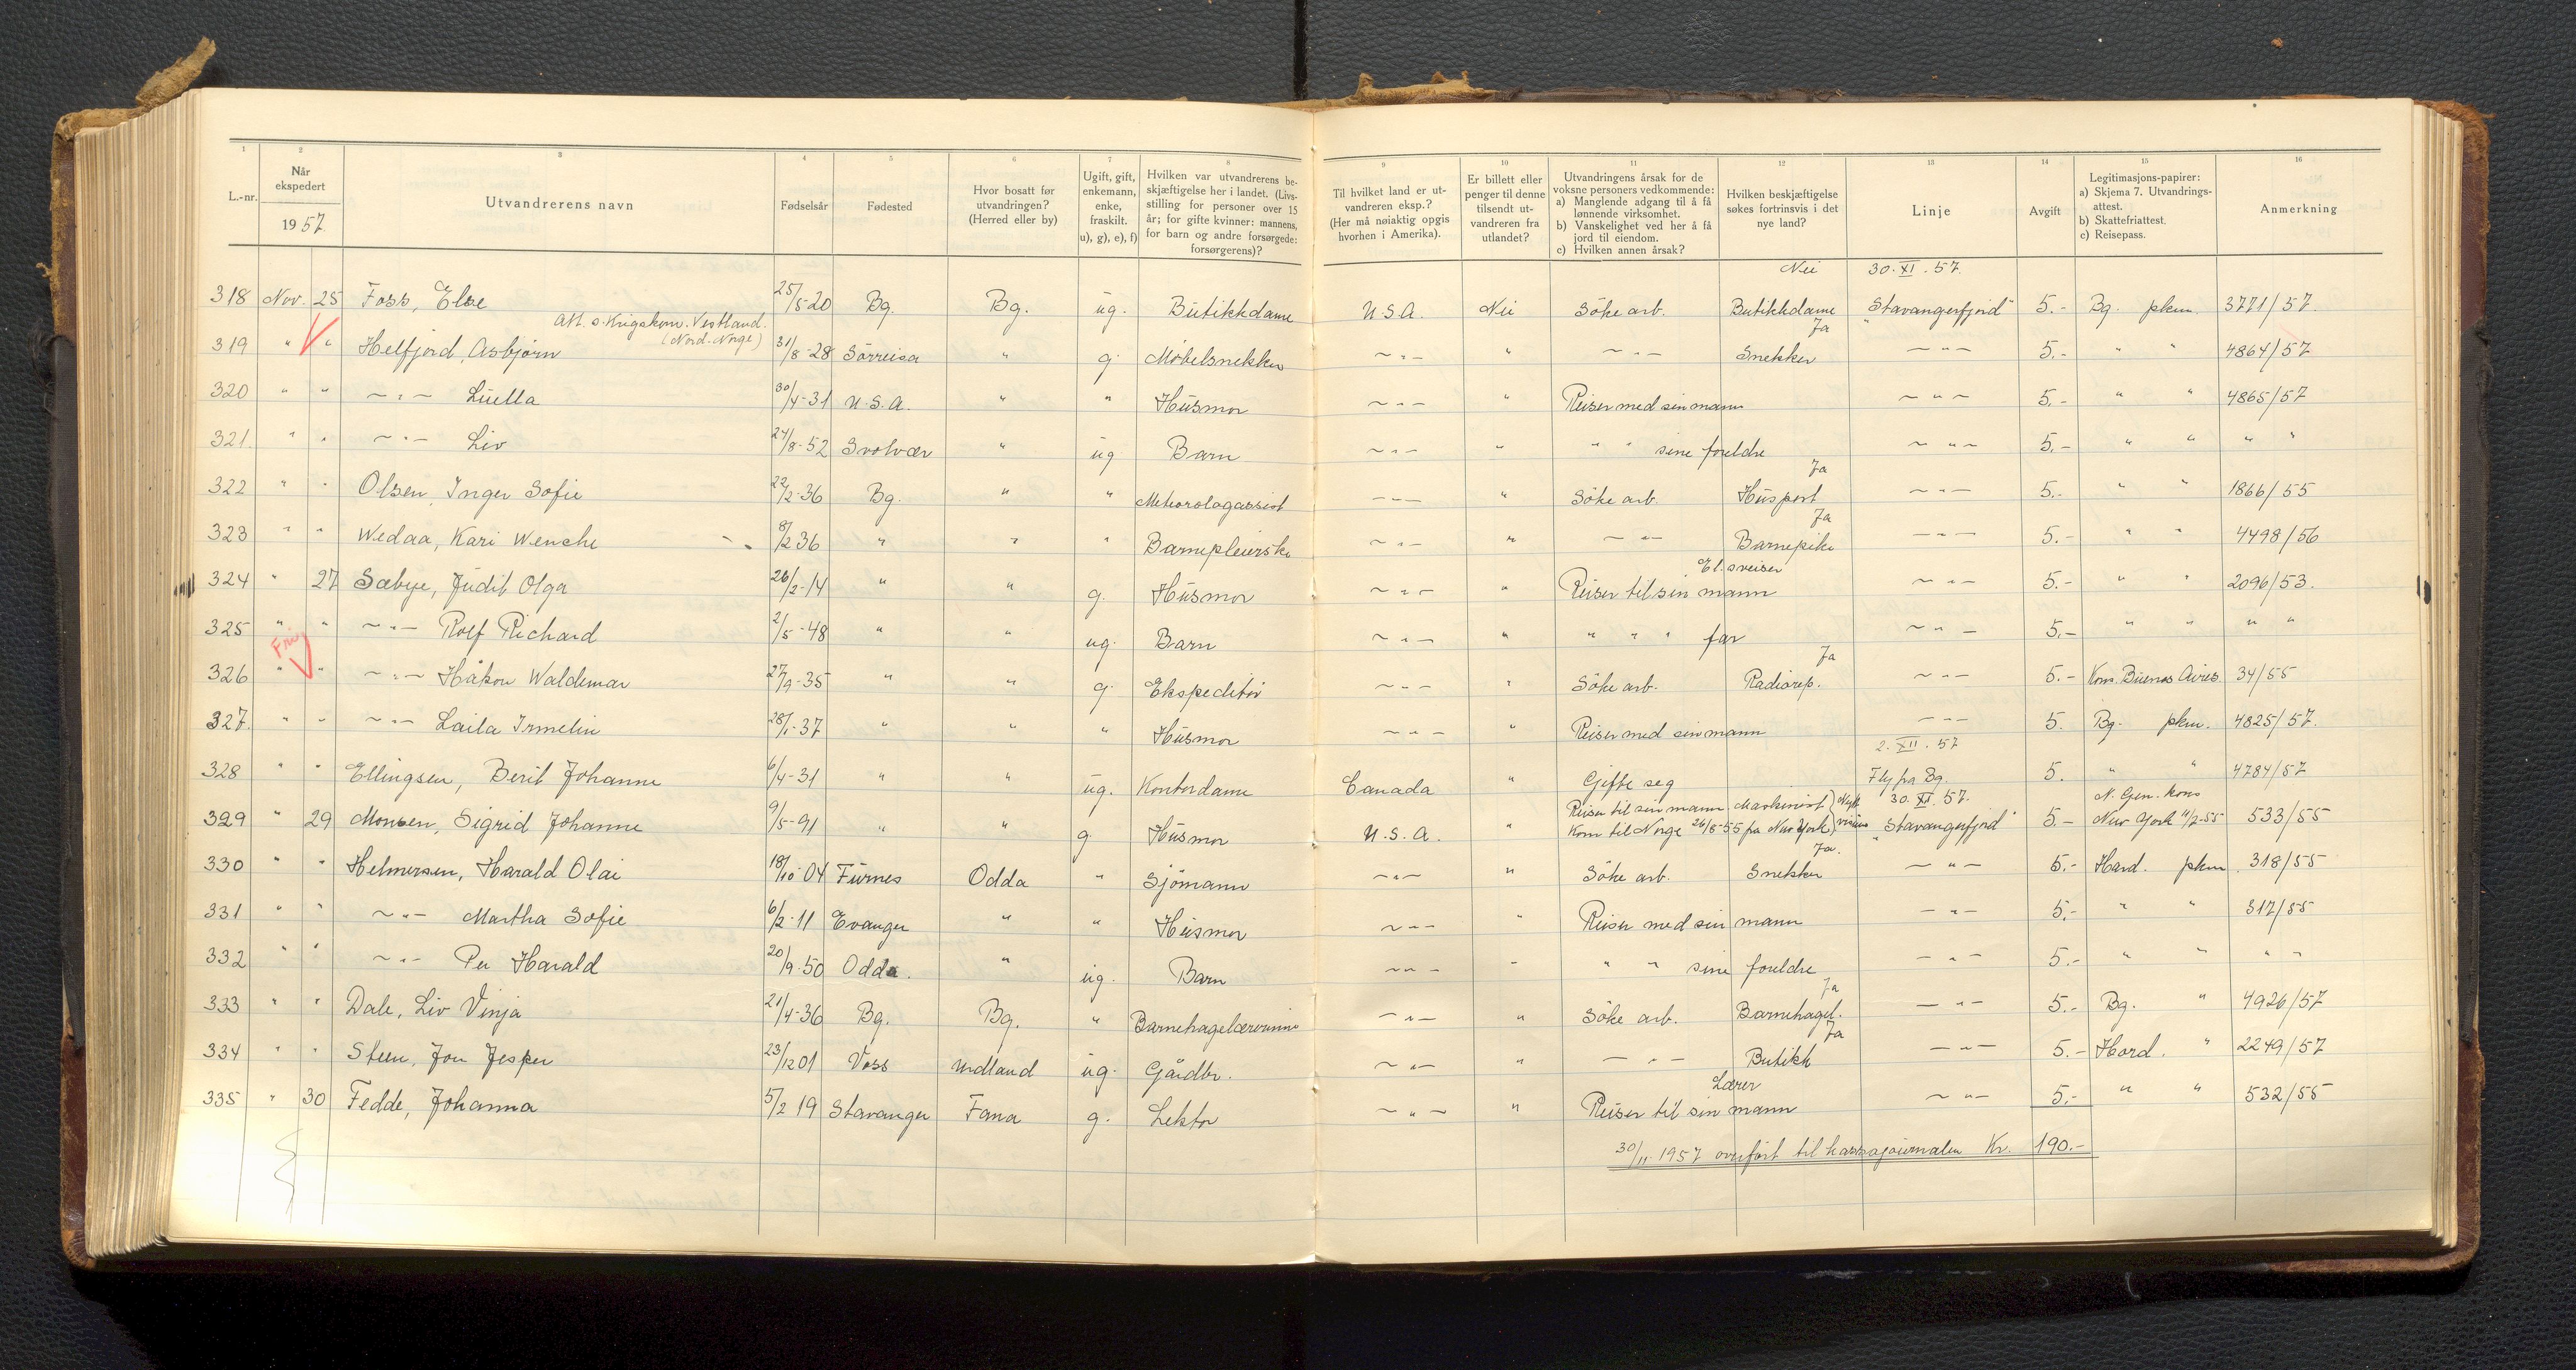 1 2 3 4 5 6 7 8 9 10 11 12 13 14 15 16
L.-nr. | Når ekspedert 1957 | Utvandrerens navn | Fødselsår | Fødested | Hvor bosatt før utvandringen? (Herred eller by) | Ugift, gift, enkemann, enke, fraskilt. u), g), e), f) | Hvilken var utvandrerens beskjæftigelse her i landet. (Livsstilling for personer over 15 år; for gifte kvinner: mannens, for barn og andre forsørgede: forsørgerens)? | Til hvilket land er utvandreren eksp.? (Her må nøiaktig opgis hvorhen i Amerika). | Er billett eller penger til denne tilsendt utvandreren fra utlandet? | Utvandringens årsak for de voksne personers vedkommende: a) Manglende adgang til å få lønnende virksomhet. b) Vanskelighet ved her å få jord til eiendom. c) Hvilken annen årsak? | Hvilken beskjæftigelse søkes fortrinsvis i det nye land? | Linje | Avgift | Legitimasjons-papirer: a) Skjema 7. Utvandringsattest. b) Skattefriattest. c) Reisepass. | Anmerkning
Nei 30.XI.57.
318 Nov. 25 Foss, Else 25/5-20 Bg. Bg. ug. Butikkdame U.S.A. Nei Söke arb. Butikkdame "Stavangerfjord" 5.- Bg. pkm. 3771/57.
Att. s. Krigskom. Vestland. (Nord-Norge) Ja
319 " " Helfjord Asbjørn 31/8-28 Sörreisa " g. Møbelsnekker ~"~ " ~"~ Snekker ~"~ 5.- " " 4864/57
320 " " ~"~ Luella 30/4-31 U.S.A. " " Husmor ~"~ " Reiser med sin mann ~"~ 5.- " " 4865/57
321. " " ~"~ Liv 24/8-52 Svolvær " ug Barn ~"~ " " " sine foreldre ~"~ 5.- " " " "
Ja
322 " " Olsen, Inger Sofie 22/2-36 Bg. " " Meteorologassist ~"~ " Söke arb. Huspost ~"~ 5.- " " 1866/55
Ja
323 " " Wedaa, Kari Wenche 8/2 36 " " " Barnepleierske ~"~ " ~"~ Barnepike ~"~ 5.- " " 4498/56
El. sveiser
324 " 27 Sæbye, Judit Olga 26/2-14 " " g. Husmor ~"~ " Reiser til sin mann ~"~ 5.- " " 2096/53.
325 " " ~"~ Rolf Richard 2/5-48 " " ug. Barn ~"~ " " " " far ~"~ 5.- " " " "
Fri Ja
326 " " ~"~ Håkon Waldemar 27/9-35 " " g. Ekspeditör ~"~ " Söke arb. Radiorep. ~"~ 5.- Kons. Buenos Aires. 34/55
327. " " ~"~ Laila Irmelin 28/1-37 " " " Husmor ~"~ " Reiser med sin mann ~"~ 5. Bg. pkm. 4825/57.
2.XII.57
328 " " Ellingsen, Berit Johanne 6/4-31 " " ug. Kontordame Canada " Gifte seg Fly fra Bg. 5. " " 4784/57
Reiser til sin mann Maskinist) Nytt 30.XI.57. N. Gen. kons
329 " 29 Monsen, Sigrid Johanne 9/5-91 " " g. Husmor U.S.A. " Kom til Norge 26/8-55 fra New York) visum "Stavangerfjord" 5.- New York 11/7-55 533/55
Ja.
330 " " Helmersen, Harald Olai 18/10-04 Furnes Odda " Sjömann ~"~ " Söke arb. Snekker ~"~ 5.- Hard. pkm. 318/55
331 " " ~"~ Martha Sofie 6/2-11 Evanger " " Husmor ~"~ " Reiser med sin mann ~"~ 5.- " " 317/55
332 " " ~"~ Per Harald 20/9-50 Odda. " ug. Barn ~"~ " " " sine foreldre ~"~ 5.- " " " "
Ja
333 " " Dale, Liv Vinja 21/4-36 Bg. Bg. " Barnehagelærerinne ~"~ " Söke arb. Barnehagel. ~"~ 5.- Bg. " 4926/57
Ja
334 " " Steen, Jon Jesper 23/12 01 Voss Undland ug. Gårdbr. ~"~ " ~"~ Butikk ~"~ 5.- Hord. " 2249/57
Lærer
335 " 30 Fedde, Johanna 5/2 19 Stavanger Fana g. Lektor ~"~ " Reiser til sin mann ~"~ 5.- " " 532/55
30/11-1957 overført til kassajournalen Kr. 190.-